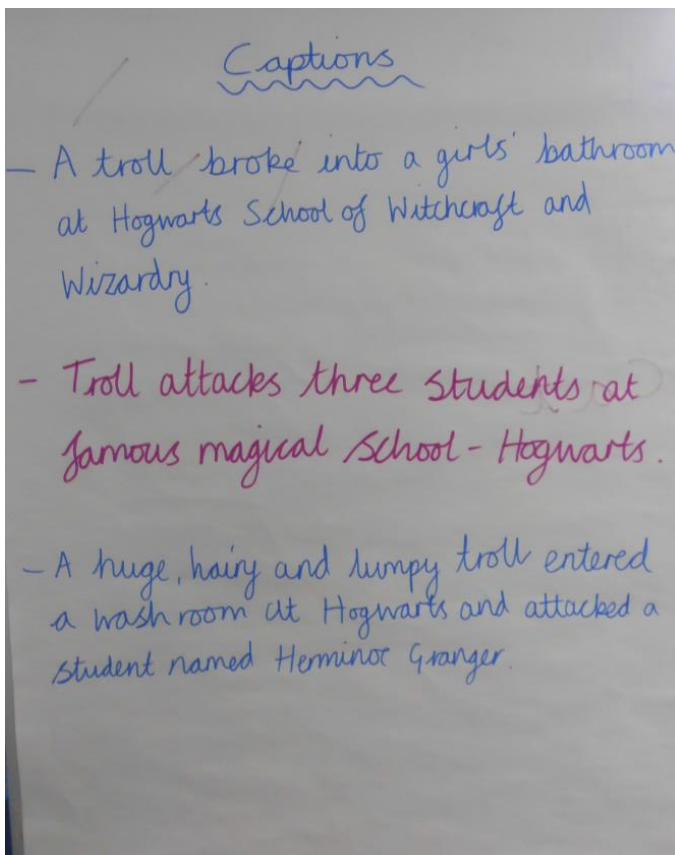 Captions
- A troll broke into a girls' bathroom
at Hogwarts School of Witchcraft and
Wizardry.
- Troll attacks three students at
famous magical school - Hogwarts.
- A huge, hairy and lumpy troll entered
a washroom at Hogwarts and attacked a
student named Herminoe Granger.